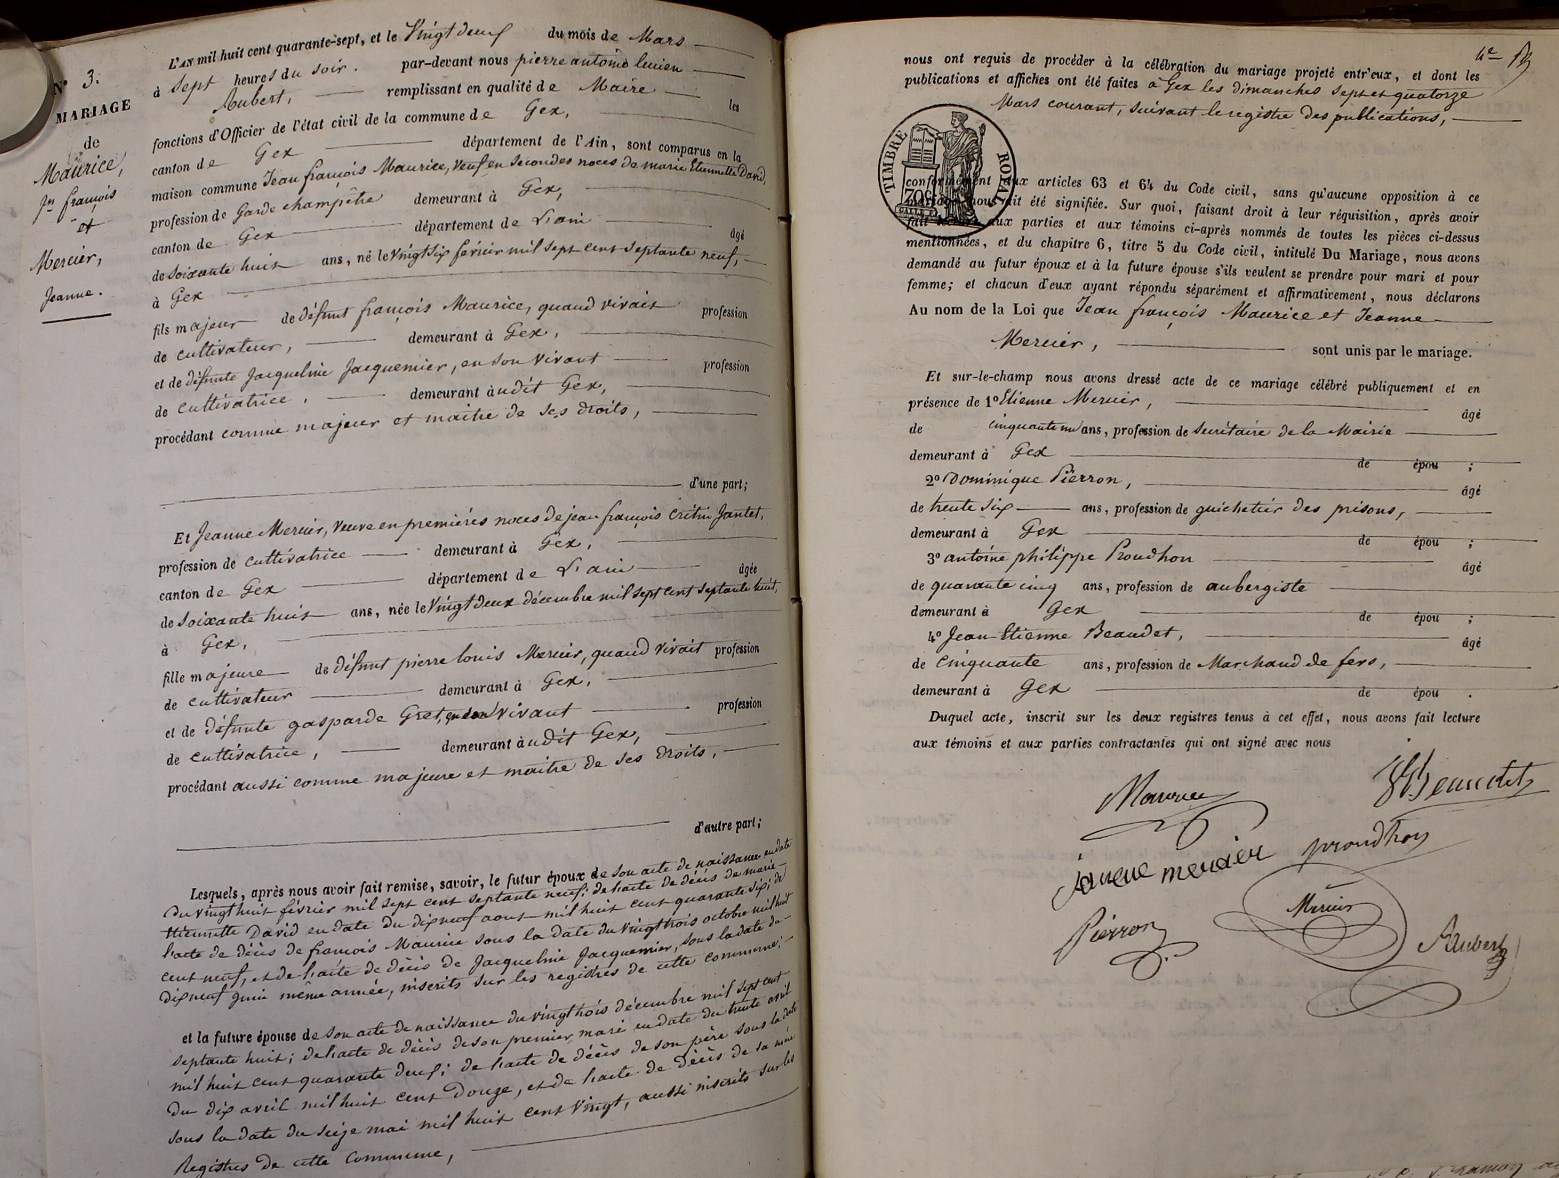 N° 3.
MARIAGE
de
Maurice,
Jn françois
et
Mercier,
Jeanne.
L'AN mil huit cent quarante-sept, et le Vingt deux du mois de Mars
à Sept heures du soir. par-devant nous pierre antoine lucien
Aubert, remplissant en qualité de Maire les
fonctions d'Officier de l'état civil de la commune de Gex,
canton de Gex département de l'Ain, sont comparus en la
maison commune Jean françois Maurice, Veuf en secondes noces de marie Etiennette David,
profession de Garde champêtre demeurant à Gex,
canton de Gex département de L'ain âgé
de Soixante huit ans, né le Vingt six février mil sept cent septante neuf,
à Gex
fils majeur de défunt françois Maurice, quand vivait profession
de cultivateur, demeurant à Gex,
et de défunte Jacqueline Jacquemier, en son vivant profession
de cultivatrice, demeurant audit Gex,
procédant comme majeur et maitre de ses droits,
d'une part;
Et Jeanne Mercier, veuve en premières noces de jean françois Critin Jantet,
profession de cultivatrice demeurant à Gex,
canton de Gex département de L'ain âgée
de soixante huit ans, née le Vingt deux décembre mil sept cent septante huit,
à Gex,
fille majeure de défunt pierre louis Mercier, quand vivait profession
de cultivateur demeurant à Gex,
et de défunte gasparde Gret, en son vivant profession
de cultivatrice, demeurant audit Gex,
procédant aussi comme majeure et maitre de ses droits,
d'autre part;
Lesquels, après nous avoir fait remise, savoir, le futur époux de son acte de naissance en date
du vingt huit février mil sept cent septante neuf; de l'acte de décès de marie
Etiennette David en date du dix neuf aout mil huit cent quarante six; de
l'acte de décès de françois Maurice sous la date du vingt trois octobre mil huit
cent neuf, et de l'acte de décès de Jacqueline Jacquemier, sous la date du
dix neuf juin même année, inscrits sur les registres de cette commune;
et la future épouse de son acte de naissance du vingt trois décembre mil sept cent
septante huit; de l'acte de décès de son premier mari en date du trente avril
mil huit cent quarante deux; de l'acte de décès de son père sous la date
du dix avril mil huit cent douze, et de l'acte de décès de sa mère
sous la date du seize mai mil huit cent vingt, aussi inscrits sur les
Registres de cette commune,
nous ont requis de procéder à la célébration du mariage projeté entr'eux, et dont les
publications et affiches ont été faites à Gex les dimanches sept et quatorze
Mars courant, suivant le registre des publications,
TIMBRE ROYAL
conformément aux articles 63 et 64 du Code civil, sans qu'aucune opposition à ce
mariage nous ait été signifiée. Sur quoi, faisant droit à leur réquisition, après avoir
fait lecture aux parties et aux témoins ci-après nommés de toutes les pièces ci-dessus
mentionnées, et du chapitre 6, titre 5 du Code civil, intitulé Du Mariage, nous avons
demandé au futur époux et à la future épouse s'ils veulent se prendre pour mari et pour
femme; et chacun d'eux ayant répondu séparément et affirmativement, nous déclarons
Au nom de la Loi que Jean françois Maurice et Jeanne
Mercier, sont unis par le mariage.
Et sur-le-champ nous avons dressé acte de ce mariage célébré publiquement et en
présence de 1° Etienne Mercier, âgé
de cinquante un ans, profession de Secrétaire de la Mairie
demeurant à Gex de épou ;
2° Dominique Pierron, âgé
de trente six ans, profession de guichetier des prisons,
demeurant à Gex de épou ;
3° antoine philippe Proudhon âgé
de quarante cinq ans, profession de aubergiste
demeurant à Gex de épou ;
4° Jean-Etienne Beaudet, âgé
de cinquante ans, profession de Marchand de fers,
demeurant à Gex de épou .
Duquel acte, inscrit sur les deux registres tenus à cet effet, nous avons fait lecture
aux témoins et aux parties contractantes qui ont signé avec nous
Maurice
Beaudet
jeanne mercier proudhon
Mercier
Pierron
Aubert